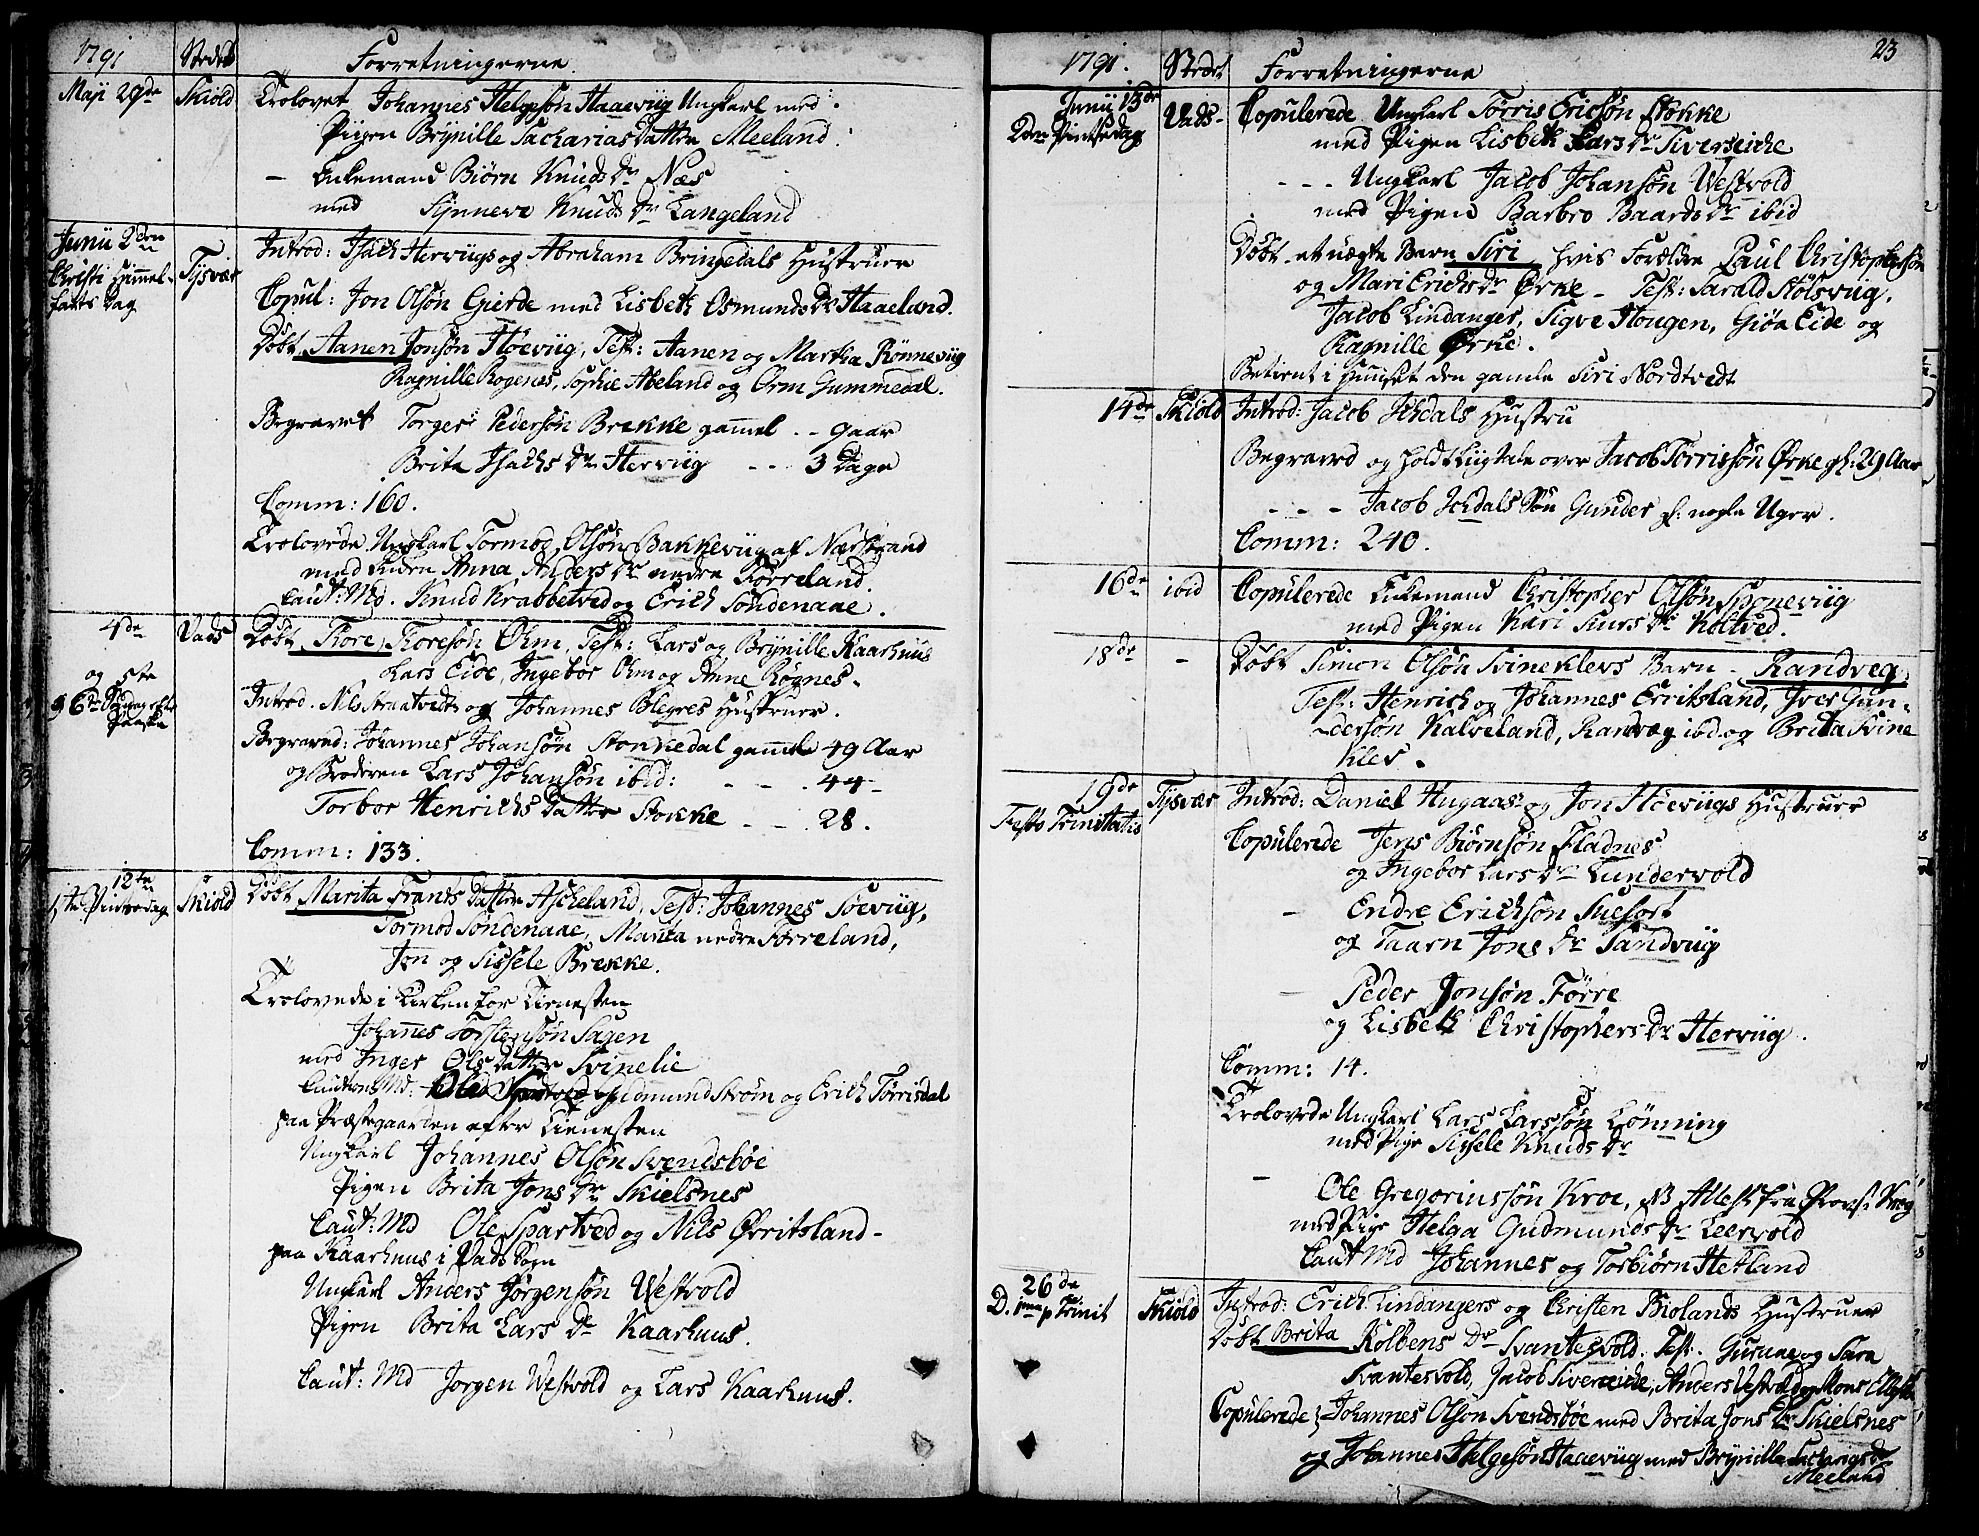 1791 Stedet Forretningerne
Maji 29de Skiold Trolovet Johannes Helgesøn Haaeviig Ungkarl med
Piigen Brynille Sacharias Datter Meeland
- Enkemand Biørn Knuds Dr Næs
med Synneve Knuds Dr Langeland
Junii 2den Christi Himmelfarts Dag Tysvær Introd: Isach Herviigs og Abraham Bringedals Hustruer
Copul: Jon Olsøn Gierde med Lisbeth Osmunds Dr Haaeland.
Døbt Aanen Jonsøn Høeviig, Test: Aanen og Martha Rønneviig
Ragnille Rogenes, Sophie Abeland og Orm Gummedal.
Begravet Torger Pedersøn Brekke gammel - 9 aar
Brita Isachs Dr Herviig - - - 3 Dage
Comm: 160.
Trolovede Ungkarl Tormod Olsøn Bakkeviig af Nærstrand
med Enken Anna Anders Dr nedre Førreland.
Caut: Md. Knud Krabbetved og Erich Søndenaae.
4de Vads Døbt Tore Toresøn Ohm, Test: Lars og Brynille Kaarhuus
Lars Eide, Ingebor Ohm og Anne Røgnes.
og 5te
6te Søndag efter Paaske
Introd. Nils Straatvedts og Johannes Blegres Hustruer.
Begraved: Johannes Johansøn Stonkedal gamle 49 Aar
og Broderen Lars Johansøn ibid: - - - 44 -
Torbor Henrichs Datter Stokke - - - 28.
Comm: 133.
12te 1ste Pintsedag Skiold Døbt Marita Frants Datter Ascheland, Test: Johannes Soeviig,
Tormod Søndenaae, Marita nedre Førreland,
Jon og Sissele Brekke.
Trolovede i Kirken for Tienesten
Johannes Torstensøn Sagen
med Inger Ols Datter Svinelie
Cautions Md: Gudmund Strøm og Erich Tørrisdal
paa Præstegaarden efter Tienesten
Ungkarl Johannes Olsøn Svendsbøe
Pigen Brita Jons Dr Skielsnes
Caut: Md Ole Spartved og Nils Øvritsland -
paa Kaarhuus i Vads Sogn
Ungkarl Anders Jørgensøn Westvold
Pigen Brita Lars Dr Kaarhuus.
Caut: Md Jørgen Westvold og Lars Kaarhuus.
23
1791. Stedet Forretningerne
Junii 13de 2den Pintsedag Vads- Copulerede Ungkarl Tørris Ericsøn Stokke
med Pigen Lisbeth Lars Dr Siverseiche
- - - Ungkarl Jacob Johansøn Westvold
med Pigen Barbro Baards Dr ibid
Døbt et uægte Barn Siri, hvis Forældre Paul Christophersøn
og Mari Erichs Dr Ørke - Test: Sarald Stølsviig,
Jacob Lindanger, Sigve Hougen, Giøa Eide og
Ragnille Ørke.
Betient i Huuset den gamle Siri Nordtvedt
14de Skiold Introd: Jacob Ichdals Hustru
Begraved og holdt Liigtale over Jacob Tørrissøn Ørke gl: 29 Aar
- - - Jacob Ichdals Søn Gunder gl: nogle Uger.
Comm: 240.
16de ibid Copulerede Enkemand Christopher Olsøn Sponeviig
med Pigen Kari Siurs Dr Koltved.
18de - Døbt Simon Olsøn Svineklevs Barn - Randveg,
Test: Henrich og Johannes Erritsland, Iver Gun-
dersøn Kalveland, Randvæg ibd. og Brita Svine
klev.
19de Festo Trinitatis Tysvær Introd: Daniel Hugaas og Jon Høeviigs Hustruer
Copulerede Jens Biørnsøn Fladnes
og Ingebor Lars Dr Lundervold
- Endre Erichsøn Stiefort
og Taarn Jons Dr Sandviig
- Peder Jonsøn Førre
og Lisbeth Christophers Dr Herviig.
Comm: 14.
Trolovede Ungkarl Lars Larssøn Lønning
med Pige Sissele Knuds Dr
- Ole Gregoriussøn Kroe, NB Attest fra
med Pige Helga Gudmunds Dr Leervold
Caut Md Johannes og Torbiørn Hetland
26de D. 1ma p Trinit Skiold Introd: Erich Lindangers og Christen Biolands Hustruer
Døbt Brita Kolbens Dr Svantesvold. Test. Gurune og Sara
Svantesvold, Jacob Sivereide, Anders Vestvold og Mons
Copulerede Johannes Olsøn Svendsbøe med Brita Jons Dr Skielsnes
og Johannes Helgesøn Haaeviig med Brynille Sacharias Dr
Meeland